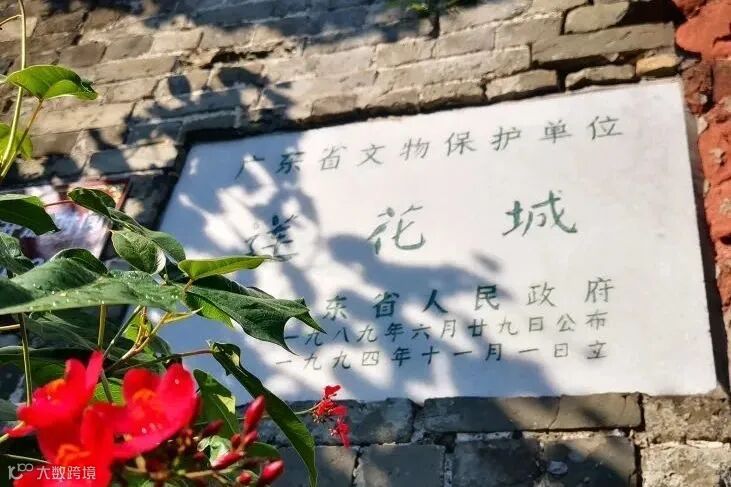 广东省文物保护单位
莲花城
东省人民政府
一九八九年六月廿九日公布
一九九四年十一月一日立
大数跨境